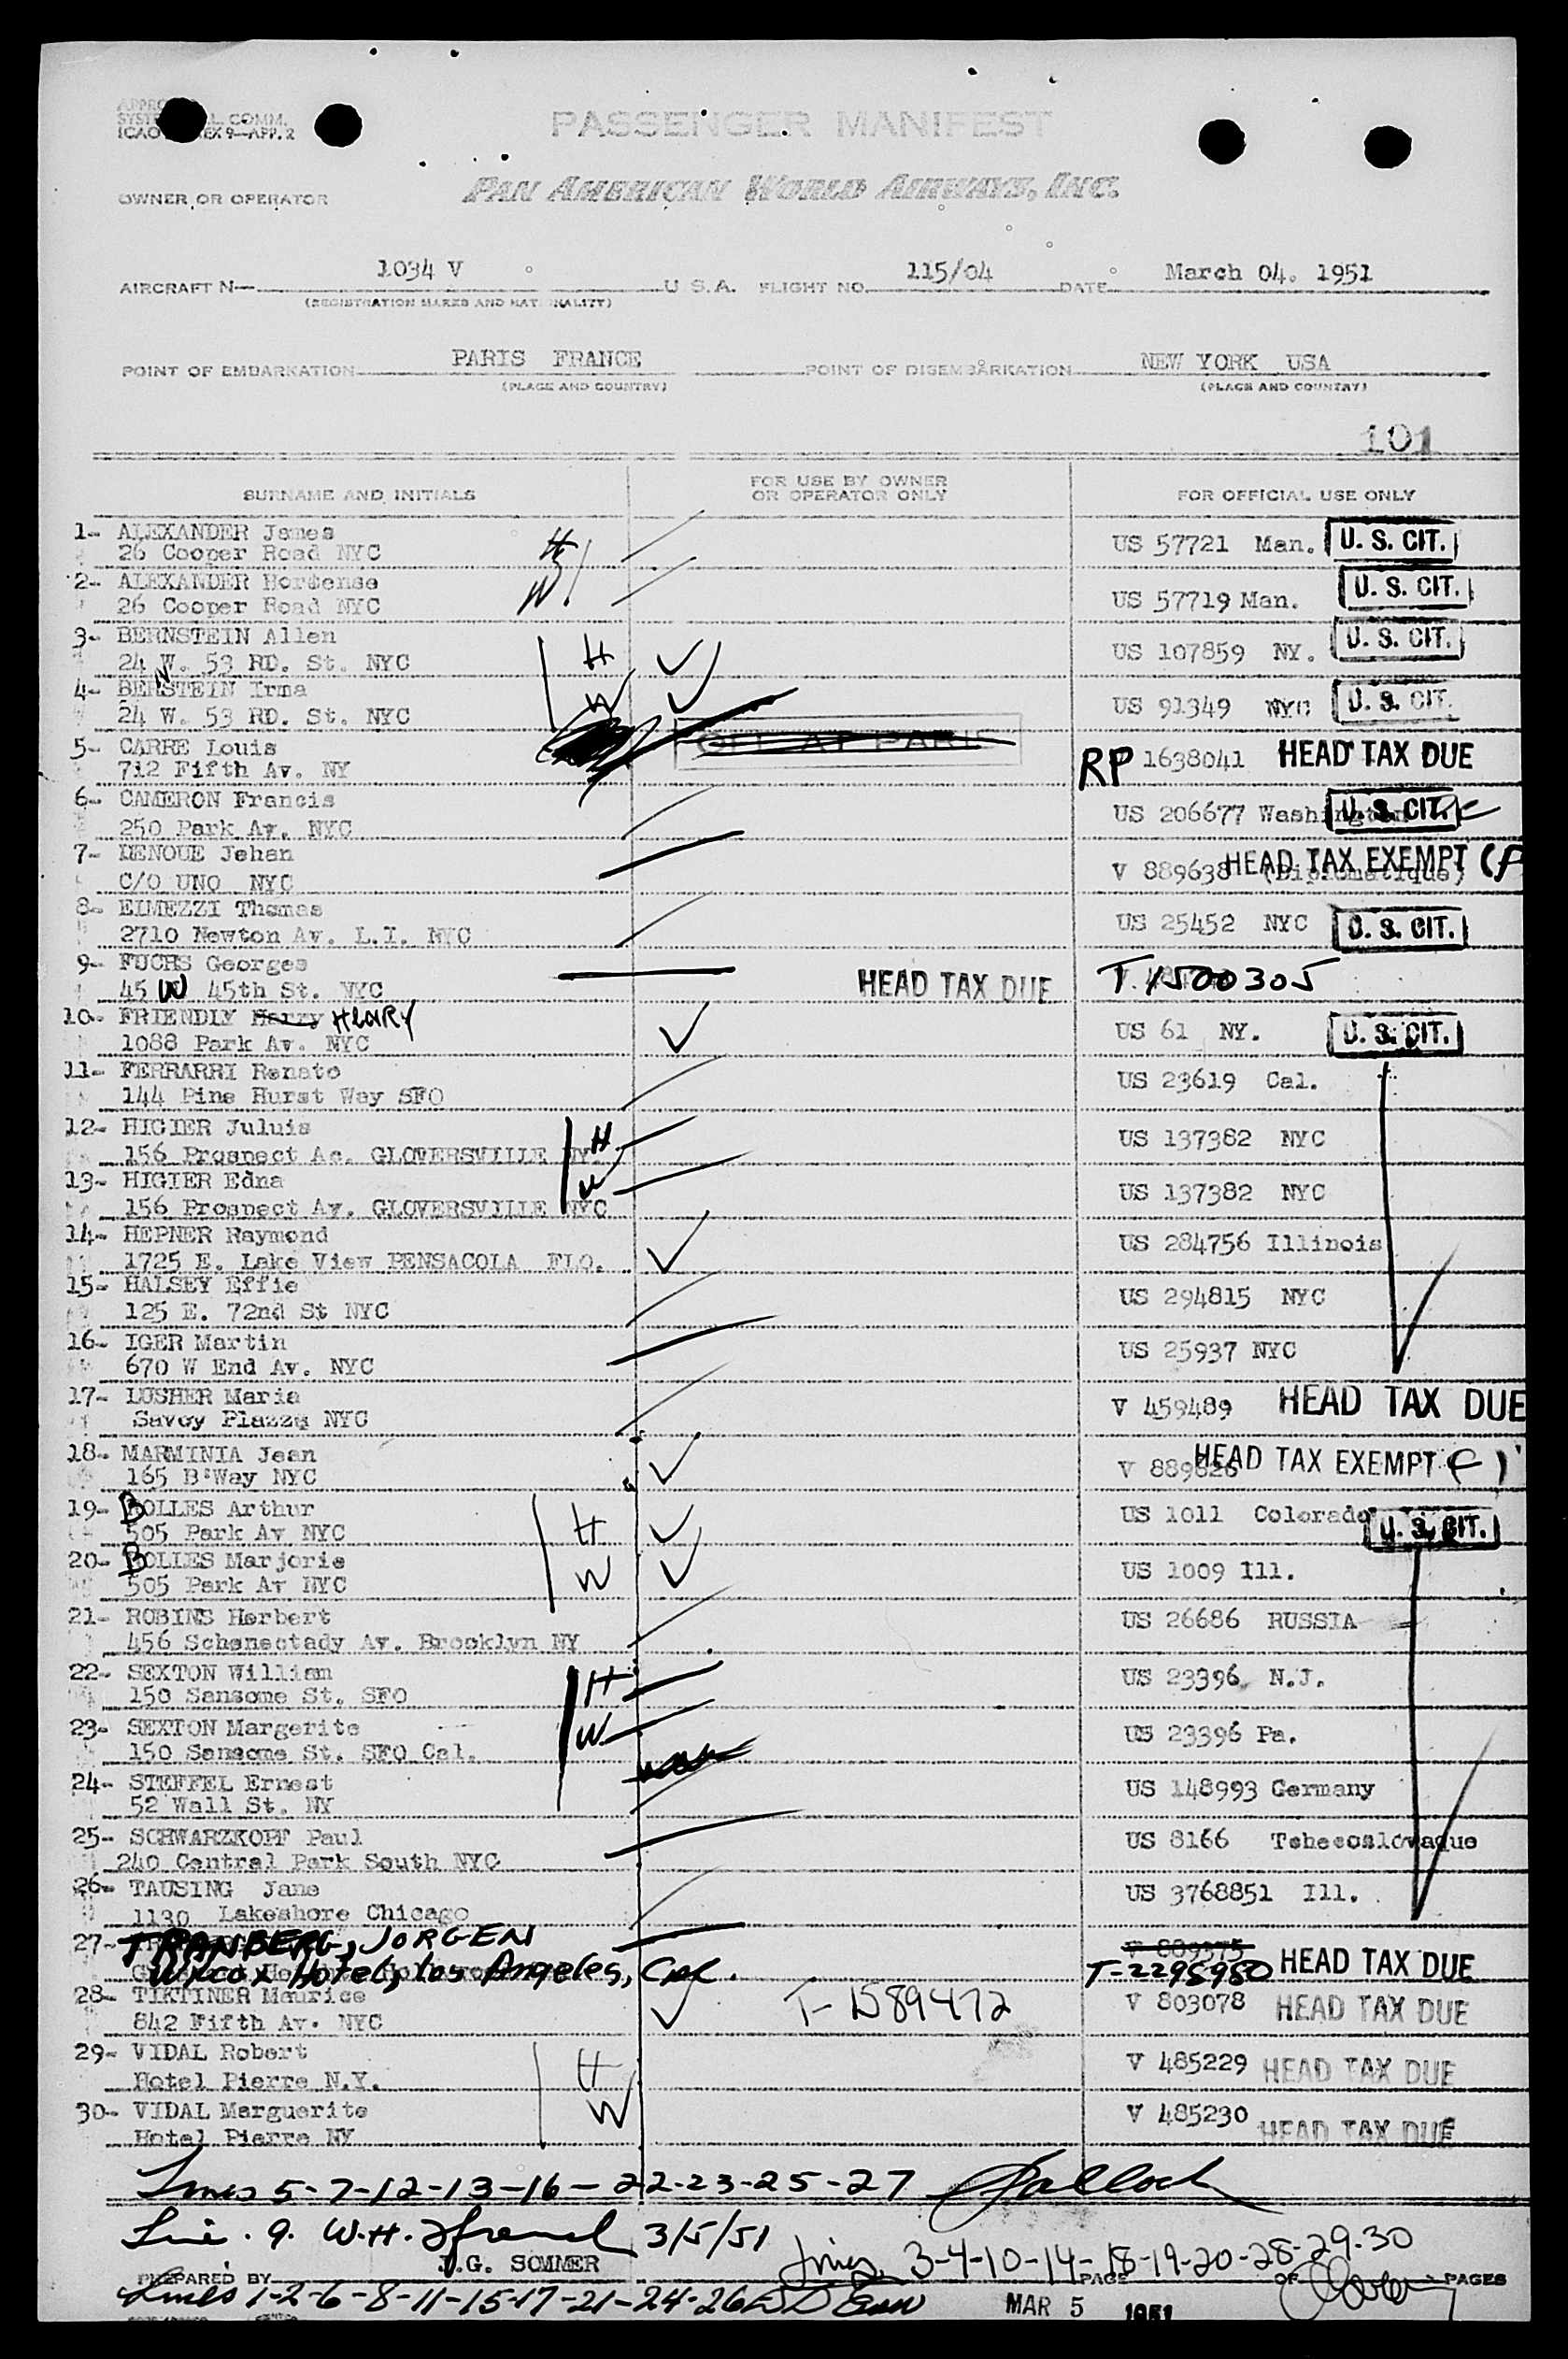 ICAO ANNEX 9—APP. 2
PASSENGER MANIFEST
OWNER OR OPERATOR PAN AMERICAN WORLD AIRWAYS, INC.
AIRCRAFT N— 1034 V U S.A. FLIGHT NO. 115/04 DATE March 04. 1951
(REGISTRATION MARKS AND NATIONALITY)
POINT OF EMBARKATION PARIS FRANCE POINT OF DISEMBARKATION NEW YORK USA
(PLACE AND COUNTRY) (PLACE AND COUNTRY)
101
SURNAME AND INITIALS FOR USE BY OWNER OR OPERATOR ONLY FOR OFFICIAL USE ONLY
1- ALEXANDER James H
26 Cooper Road NYC US 57721 Man. U. S. CIT.
2- ALEXANDER Hortense W
26 Cooper Road NYC US 57719 Man. U. S. CIT.
3- BERNSTEIN Allen H
24 W. 53 RD. St. NYC US 107859 NY. U. S. CIT.
4- BERNSTEIN Irma W
24 W. 53 RD. St. NYC US 91349 NYC U. S. CIT.
5- CARRE Louis OFF AT PARIS
712 Fifth Av. NY RP 1638041 HEAD TAX DUE
6- CAMERON Francis
250 Park Av. NYC US 206677 Washington U. S. CIT. DC
7- DENOUE Jehan
C/O UNO NYC V 889638 (Diplomatique) HEAD TAX EXEMPT (F
8- EIMEZZI Thomas
2710 Newton Av. L.I. NYC US 25452 NYC U. S. CIT.
9- FUCHS Georges
45 W 45th St. NYC HEAD TAX DUE T. 1500305
10- FRIENDLY Harry HENRY
1088 Park Av. NYC US 61 NY. U. S. CIT.
11- FERRARRI Renato
144 Pine Hurst Way SFO US 23619 Cal.
12- HIGIER Juluis H
156 Prospect Ac. GLOVERSVILLE NY. US 137382 NYC
13- HIGIER Edna W
156 Prospect Av. GLOVERSVILLE NYC US 137382 NYC
14- HEPNER Raymond
1725 E. Lake View PENSACOLA FLO. US 284756 Illinois
15- HALSEY Effie
125 E. 72nd St NYC US 294815 NYC
16- IGER Martin
670 W End Av. NYC US 25937 NYC
17- LUSHER Maria
Savoy Plazza NYC V 459489 HEAD TAX DUE
18- MARMINIA Jean
165 B'Way NYC V 889826 HEAD TAX EXEMPT (F)
19- BOLLES Arthur H
505 Park Av NYC US 1011 Colorado U. S. CIT.
20- BOLLES Marjorie W
505 Park Av NYC US 1009 Ill.
21- ROBINS Herbert
456 Schenectady Av. Brooklyn NY US 26686 RUSSIA
22- SEXTON William H
150 Sansome St. SFO US 23396 N.J.
23- SEXTON Margerite W
150 Sansome St. SFO Cal. US 23396 Pa.
24- STEFFEL Ernest
52 Wall St. NY US 148993 Germany
25- SCHWARZKOPF Paul
240 Central Park South NYC US 8166 Tchecoslovaque
26- TAUSING Jane
1130 Lakeshore Chicago US 3768851 Ill.
27- TRANBERG, JORGEN V 889375
Wilcox Hotel, Los Angeles, Cal. T-2295980 HEAD TAX DUE
28- TIKTINER Maurice
842 Fifth Av. NYC T-1589472 V 803078 HEAD TAX DUE
29- VIDAL Robert H
Hotel Pierre N.Y. V 485229 HEAD TAX DUE
30- VIDAL Marguerite W
Hotel Pierre NY V 485230 HEAD TAX DUE
Lines 5-7-12-13-16-22-23-25-27
Line. 9. W.H. 3/5/51
J.G. SOMMER Lines 3-4-10-14-18-19-20-28-29-30
PREPARED BY PAGE OF PAGES
Lines 1-2-6-8-11-15-17-21-24-26
MAR 5 1951